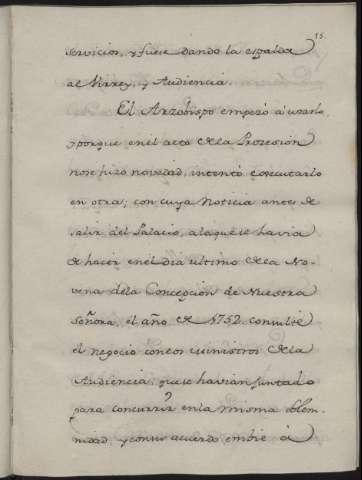 15.
servicios, y fuese dando la espalda
al Virrey, y Audiencia.
El Arzobispo empezó á usarlo,
y porque en el acto de la Prozesion
no se hizo novedad, intentó executarlo
en otra; con cuya Noticia antes de
salir del Palacio, a la que se havia
de hacer en el dia ultimo de la No-
vena de la Concepcion de Nuestra
Señora, el año de 1752. consulté
el negocio con los Ministros de la
Audiencia, que se havian juntado
para concurrir en la misma solem-
nidad y con su acuerdo embié á